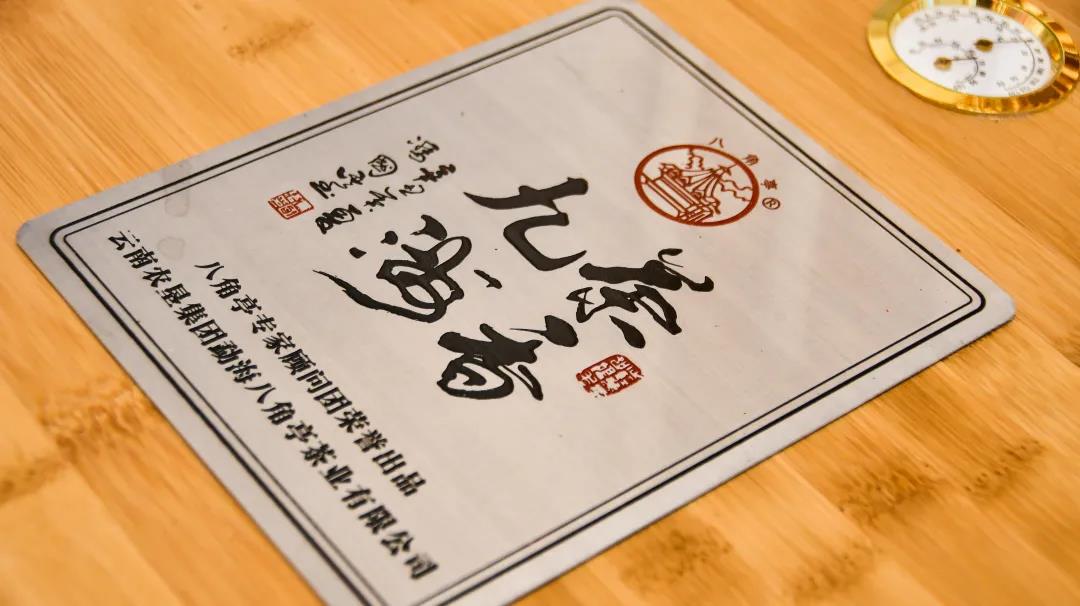 八角亭®
九
海香
八角亭专家顾问团荣誉出品
云南农垦集团勐海八角亭茶业有限公司